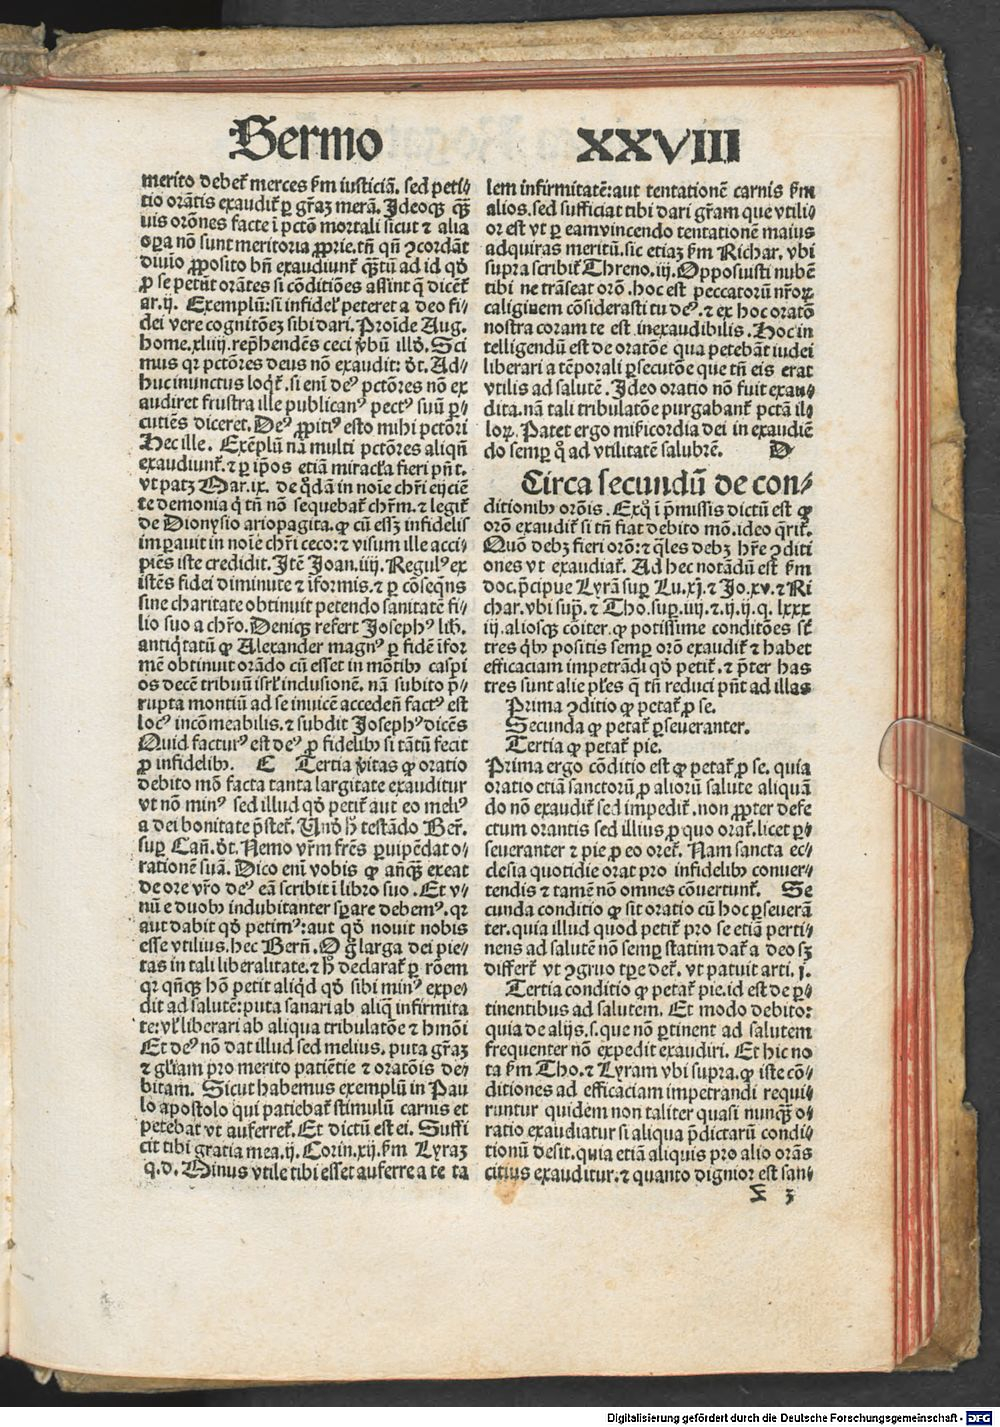 Sermo XXVIII
merito debet᷑ merces ẜm iusticiā. sed peti⸗
tio orātis exaudit᷑ ꝑ gr̄aꝫ merā. Ideoqꝫ qꝫ̄
uis orōnes facte ī pctō mortali sicut ⁊ alia
oꝑa nō sunt meritoria ꝓprie. tn̄ qn̄ ꝯcordāt
diuīo ꝓposito bn̄ exaudiunt᷑ qꝫ̄tū ad id qđ
ꝓ se petūt orātes si cōditiōes assint q̄ dicēt᷑
ar. ij. Exemplū: si infidel̓ peteret a deo fi⸗
dei vere cognitōeꝫ sibi dari. Proīde Aug.
home. xliiij. rep̄hendēs ceci v̓bū illđ. Sci
mus qꝛ pctōres deus nō exaudit: đt. Ad⸗
huc inunctus loqt᷑. si eni deꝰ pctōres nō ex
audiret frustra ille publicanꝰ pectꝰ suū ꝑ⸗
cutiēs diceret. Deꝰ ꝓpitiꝰ esto mihi pctōri
Hec ille. Exēplū nā multi pctōres aliqn̄
exaudiunt᷑. ⁊ ꝑ ip̄os etiā miracl̓a fieri pn̄t.
vt patꝫ Mar. ix. de qđā in noīe chr̄i eijciē
te demonia q̄ tn̄ nō sequebat᷑ chr̄m. ⁊ legit᷑
de Dionysio ariopagita. ꝙ cū essꝫ infidelis
imꝑauit in noīe chr̄i ceco: ⁊ visum ille acci⸗
piēs iste credidit. Itē Joan. iiij. Regulꝰ ex
istēs fidei diminute ⁊ īformis. ⁊ ꝑ cōseqn̄s
sine charitate obtinuit petendo sanitatē fi⸗
lio suo a chr̄o. Deniqꝫ refert Josephꝰ lib̓.
antiq̇tatū ꝙ Alexander magnꝰ ꝑ fidē īfor
mē obtinuit orādo cū esset in mōtibꝰ caspi
os decē tribuū isrl̓ inclusionē. nā subito p̄⸗
rupta montiū ad se inuicē acceden̄ factꝰ est
locꝰ incōmeabilis. ⁊ subdit Josephꝰ dicēs
Quid facturꝰ est deꝰ ꝓ fidelibꝰ si tātū fecit
ꝓ infidelibꝰ. C Tertia v̓itas ꝙ oratio
debito mō facta tanta largitate exauditur
vt nō minꝰ sed illud qđ petit᷑ aut eo meliꝰ
a dei bonitate p̄stet᷑. Vnđ h̓ testādo Ber̄.
suꝑ Can̄. đt. Nemo vr̄m fr̄es ꝑuipēdat o⸗
rationē suā. Dico eni vobis ꝙ anqꝫ̄ exeat
de ore vr̄o deꝰ eā scribit ī libro suo. Et v⸗
nū e duobꝰ indubitanter sꝑare debemꝰ. qꝛ
aut dabit qđ petimꝰ: aut qđ nouit nobis
esse vtilius. hec Bern̄. O ḡ larga dei pie⸗
tas in tali liberalitate. ⁊ h̓ declarat᷑ ꝑ rōem
qꝛ qn̄qꝫ hō petit aliq̇d qđ sibi minꝰ expe⸗
dit ad salutē: puta sanari ab aliq̄ infirmita
te: vl̓ liberari ab aliqua tribulatōe ⁊ hmōi
Et deꝰ nō dat illud sed melius. puta gr̄aꝫ
⁊ gl̓iam pro merito patiētie ⁊ oratōis de⸗
bitam. Sicut habemus exemplū in Pau
lo apostolo qui patiebat᷑ stimulū carnis et
petebat vt auferret᷑. Et dictū est ei. Suffi
cit tibi gratia mea. ij. Corin. xij. ẜm Lyraꝫ
q. d. Minus vtile tibi esset auferre a te ta
lem infirmitatē: aut tentationē carnis ẜm
alios. sed sufficiat tibi dari gr̄am que vtili⸗
or est vt ꝑ eam vincendo tentationē maius
adquiras meritū. sic etiaꝫ ẜm Richar. vbi
supra scribit᷑ Threno. iij. Opposuisti nubē
tibi ne trāseat orō. hoc est peccatorū nr̄oꝝ
caliginem cōsiderasti tu deꝰ. ⁊ ex hoc oratō
nostra coram te est inexaudibilis. Hoc in
telligendū est de oratōe qua petebāt iudei
liberari a tēporali ꝑsecutōe que tn̄ eis erat
vtilis ad salutē. Ideo oratio nō fuit exau⸗
dita. nā tali tribulatōe purgabant᷑ pctā il⸗
loꝝ. Patet ergo mīẜicordia dei in exaudiē
do semꝑ q̄ ad vtilitatē salubrē. D
Circa secundū de con⸗
ditionibꝰ orōis. Exq̇ ī p̄missis dictū est ꝙ
orō exaudit᷑ si tn̄ fiat debito mō. ideo q̄rit᷑.
Quō debꝫ fieri orō: ⁊ q̄les debꝫ hr̄e ꝯditi
ones vt exaudiat᷑. Ad hec notādū est ẜm
doc. p̄cipue Lyrā suꝑ Lu. xj. ⁊ Jo. xv. ⁊ Ri
char. vbi sup̄. ⁊ Tho. suꝑ. iiij. ⁊ ij. ij. q. lxxx
iij. aliosqꝫ cōiter. ꝙ potissime conditōes st̄
tres qbꝰ positis semꝑ orō exaudit᷑ ⁊ habet
efficaciam impetrādi qđ petit᷑. ⁊ p̄ter has
tres sunt alie pl̓es q̄ tn̄ reduci pn̄t ad illas
Prima ꝯditio ꝙ petat᷑ ꝓ se.
Secunda ꝙ petat᷑ ꝑseueranter.
Tertia ꝙ petat᷑ pie.
Prima ergo cōditio est ꝙ petat᷑ ꝓ se. quia
oratio etiā sanctorū ꝓ aliorū salute aliquā
do nō exaudit᷑ sed impedit᷑. non ꝓpter defe
ctum orantis sed illius ꝓ quo orat᷑. licet ꝑ⸗
seueranter ⁊ pie ꝓ eo oret᷑. Nam sancta ec⸗
clesia quotidie orat pro infidelibꝰ conuer⸗
tendis ⁊ tamē nō omnes cōuertunt᷑. Se
cunda conditio ꝙ sit oratio cū hoc ꝑseuerā
ter. quia illud quod petit᷑ pro se etiā perti⸗
nens ad salutē nō semꝑ statim dat᷑ a deo sꝫ
differt᷑ vt ꝯgruo tꝑe det᷑. vt patuit arti. j.
Tertia conditio ꝙ petat᷑ pie. id est de ꝑ⸗
tinentibus ad salutem. Et modo debito:
quia de alijs. s. que nō ꝑtinent ad salutem
frequenter nō expedit exaudiri. Et hic no
ta ẜm Tho. ⁊ Lyram vbi supra. ꝙ iste cō⸗
ditiones ad efficaciam impetrandi requi⸗
runtur quidem non taliter quasi nunqꝫ̄ o⸗
ratio exaudiatur si aliqua p̄dictarū condi⸗
tionū desit. quia etiā aliquis pro alio orās
citius exauditur. ⁊ quanto dignior est san⸗
3
Digitalisierung gefördert durch die Deutsche Forschungsgemeinschaft - DFG